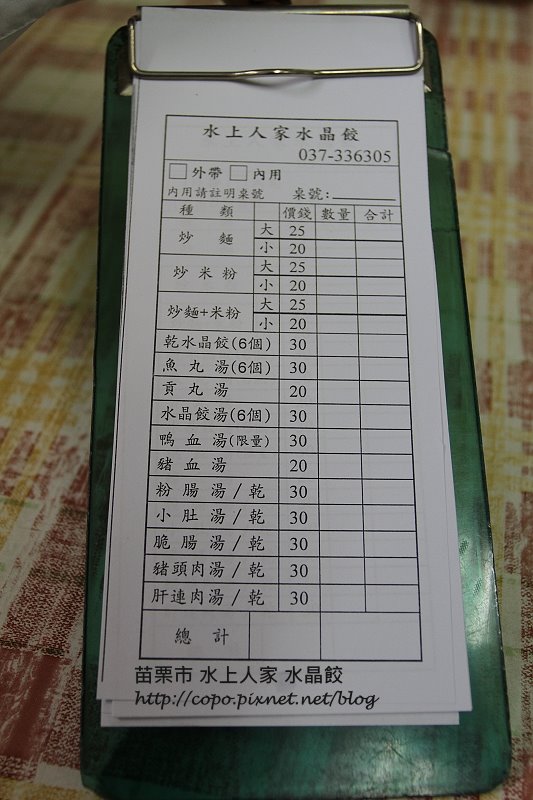 水上人家水晶餃
037-336305
□外帶 □內用
內用請註明桌號 桌號:
種類 價錢 數量 合計
炒麵 大 25
小 20
炒米粉 大 25
小 20
炒麵+米粉 大 25
小 20
乾水晶餃(6個) 30
魚丸湯(6個) 30
貢丸湯 20
水晶餃湯(6個) 30
鴨血湯(限量) 30
豬血湯 20
粉腸湯/乾 30
小肚湯/乾 30
脆腸湯/乾 30
豬頭肉湯/乾 30
肝連肉湯/乾 30
總計
苗栗市 水上人家 水晶餃
http://copo.pixnet.net/blog